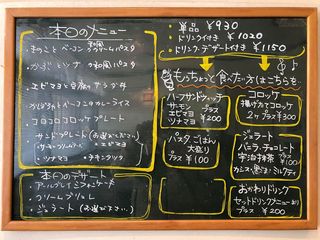 本日のメニュー
・きのことベーコン 和風クリームパスタ
・かぶとツナ 和風パスタ
・エビマヨと豆腐サラダ丼
カレーライス
・コロコロコロッケプレート
・サンドプレート(お選びください)
・サーモン ・エビマヨ
・ツナマヨ ・チキンカツ
本日のデザート
・アールグレイシフォンケーキ
・クリームブリュレ
・ジェラート(お選びください)
・単品 ¥930
・ドリンク付き ¥1020
・ドリンク・デザート付き ¥1150
もっちょっと食べたい方はこちらも…
ハーフサンドウィッチ
サーモン
エビマヨ プラス
ツナマヨ ¥200
コロッケ
揚げたてコロッケ
2ヶ プラス¥300
パスタ、ごはん
大盛り
プラス
¥100
ジェラート
バニラ、チョコレート
宇治抹茶 プラス
¥100
カシス、ミルクティ
おかわりドリンク
セットドリンクメニューより
プラス ¥200